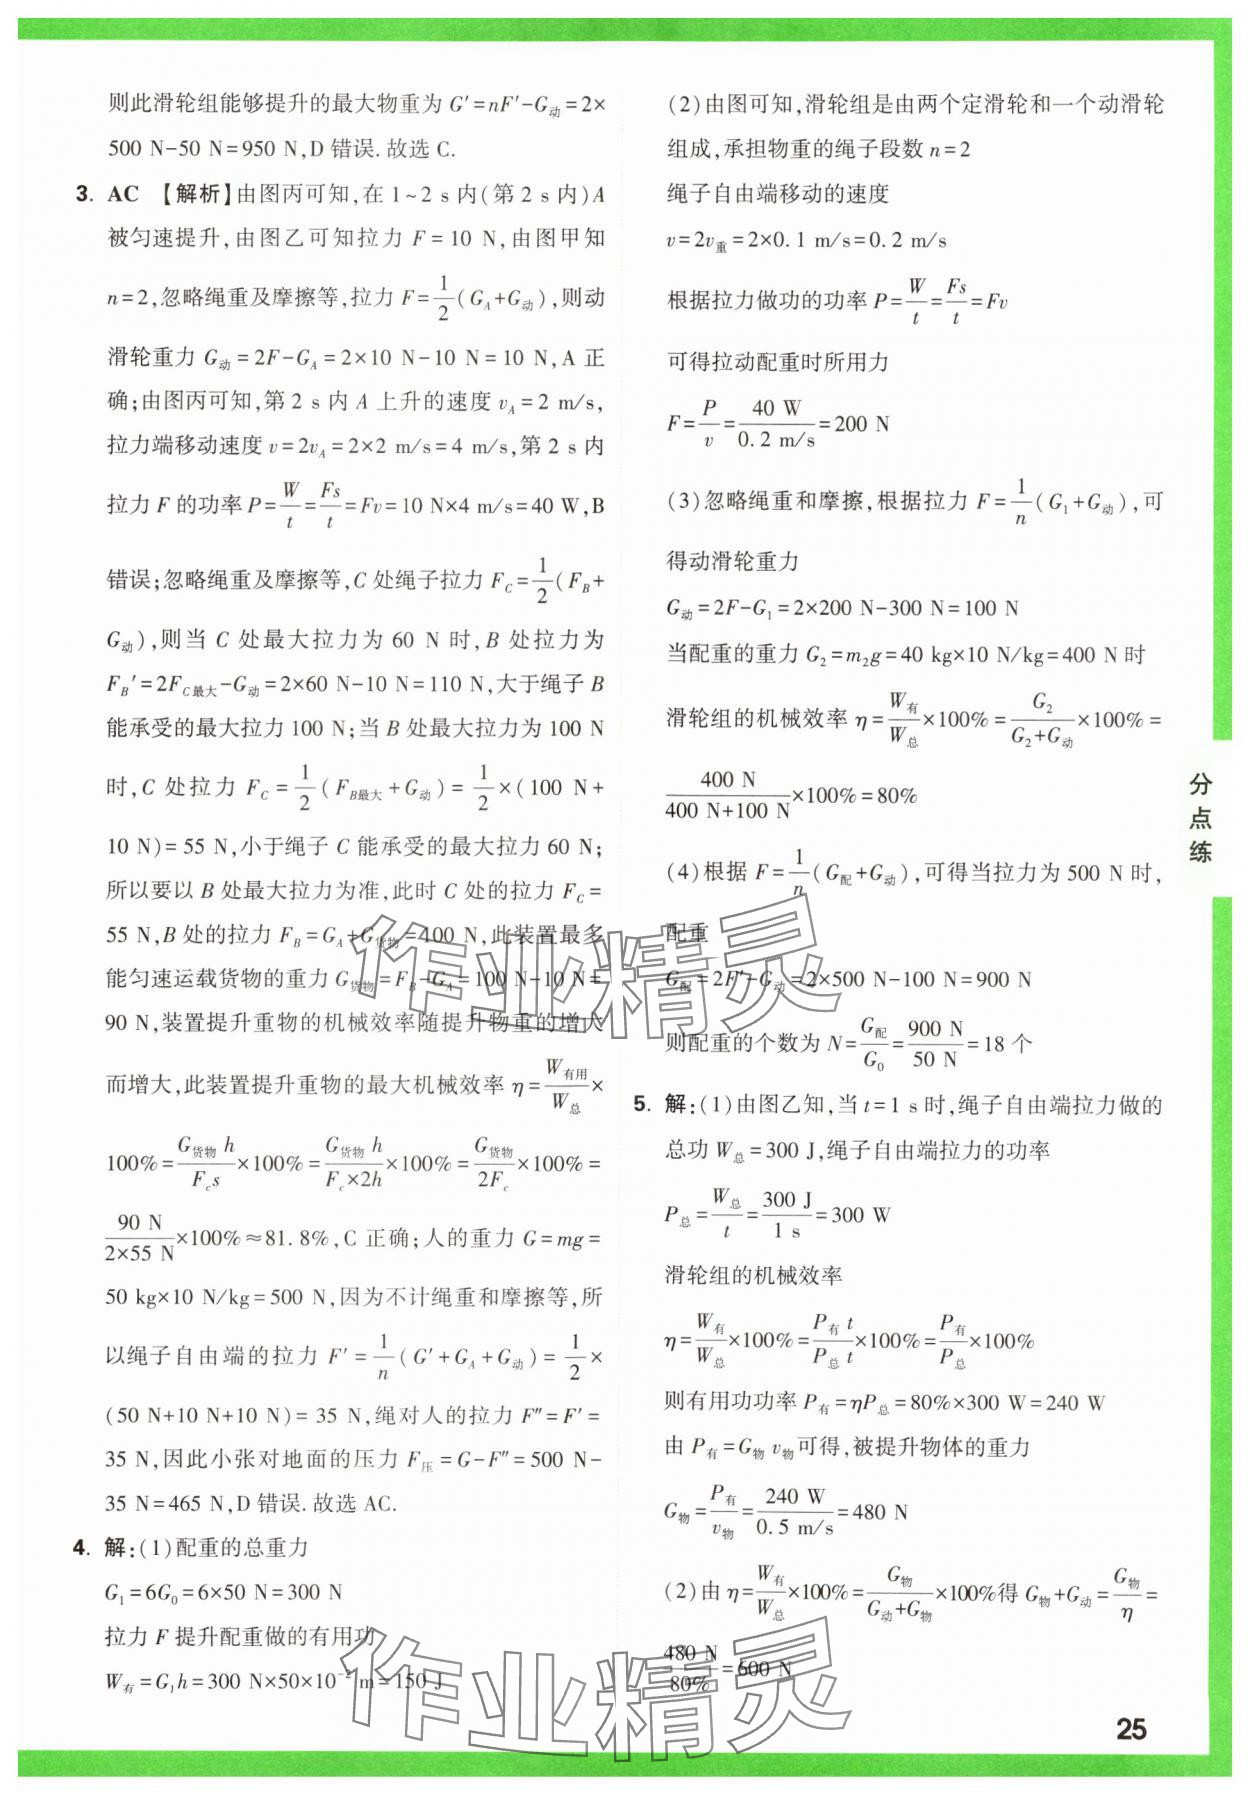 则此滑轮组能够提升的最大物重为 G′=nF′-G动=2×
500 N-50 N=950 N,D 错误. 故选 C.
3. AC 【解析】由图丙可知,在 1~2 s 内(第 2 s 内)A
被匀速提升,由图乙可知拉力 F=10 N,由图甲知
n=2,忽略绳重及摩擦等,拉力 F=1/2(G_A+G动),则动
滑轮重力 G动=2F-G_A=2×10 N-10 N=10 N,A 正
确;由图丙可知,第 2 s 内 A 上升的速度 v_A=2 m/s,
拉力端移动速度 v=2v_A=2×2 m/s=4 m/s,第 2 s 内
拉力 F 的功率 P=W/t=Fs/t=Fv=10 N×4 m/s=40 W,B
错误;忽略绳重及摩擦等,C 处绳子拉力 F_C=1/2(F_B+
G动),则当 C 处最大拉力为 60 N 时,B 处拉力为
F_B′=2F_C最大-G动=2×60 N-10 N=110 N,大于绳子 B
能承受的最大拉力 100 N;当 B 处最大拉力为 100 N
时,C 处拉力 F_C=1/2(F_B最大+G动)=1/2×(100 N+
10 N)=55 N,小于绳子 C 能承受的最大拉力 60 N;
所以要以 B 处最大拉力为准,此时 C 处的拉力 F_C=
55 N,B 处的拉力 F_B=G_A+G货物=400 N,此装置最多
能匀速运载货物的重力 G货物=F_B-G_A=100 N-10 N=
90 N,装置提升重物的机械效率随提升物重的增大
而增大,此装置提升重物的最大机械效率 η=W有用/W总×
100%=G货物h/F_c s×100%=G货物h/F_c×2h×100%=G货物/2F_c×100%=
90 N/2×55 N×100%≈81.8%,C 正确;人的重力 G=mg=
50 kg×10 N/kg=500 N,因为不计绳重和摩擦等,所
以绳子自由端的拉力 F′=1/n(G′+G_A+G动)=1/2×
(50 N+10 N+10 N)=35 N,绳对人的拉力 F″=F′=
35 N,因此小张对地面的压力 F压=G-F″=500 N-
35 N=465 N,D 错误. 故选 AC.
4. 解:(1)配重的总重力
G₁=6G₀=6×50 N=300 N
拉力 F 提升配重做的有用功
W有=G₁h=300 N×50×10⁻² m=150 J
(2)由图可知,滑轮组是由两个定滑轮和一个动滑轮
组成,承担物重的绳子段数 n=2
绳子自由端移动的速度
v=2v重=2×0.1 m/s=0.2 m/s
根据拉力做功的功率 P=W/t=Fs/t=Fv
可得拉动配重时所用力
F=P/v=40 W/0.2 m/s=200 N
(3)忽略绳重和摩擦,根据拉力 F=1/n(G₁+G动),可
得动滑轮重力
G动=2F-G₁=2×200 N-300 N=100 N
当配重的重力 G₂=m₂g=40 kg×10 N/kg=400 N 时
滑轮组的机械效率 η=W有/W总×100%=G₂/G₂+G动×100%=
400 N/400 N+100 N×100%=80%
(4)根据 F=1/n(G配+G动),可得当拉力为 500 N 时,
配重
G配=2F′-G动=2×500 N-100 N=900 N
则配重的个数为 N=G配/G₀=900 N/50 N=18 个
5. 解:(1)由图乙知,当 t=1 s 时,绳子自由端拉力做的
总功 W总=300 J,绳子自由端拉力的功率
P总=W总/t=300 J/1 s=300 W
滑轮组的机械效率
η=W有/W总×100%=P有t/P总t×100%=P有/P总×100%
则有用功功率 P有=ηP总=80%×300 W=240 W
由 P有=G物v物可得,被提升物体的重力
G物=P有/v物=240 W/0.5 m/s=480 N
(2)由 η=W有/W总×100%=G物/G动+G物×100%得 G物+G动=G物/η=
480 N/80%=600 N
分点练
25
作业精灵
作业精灵